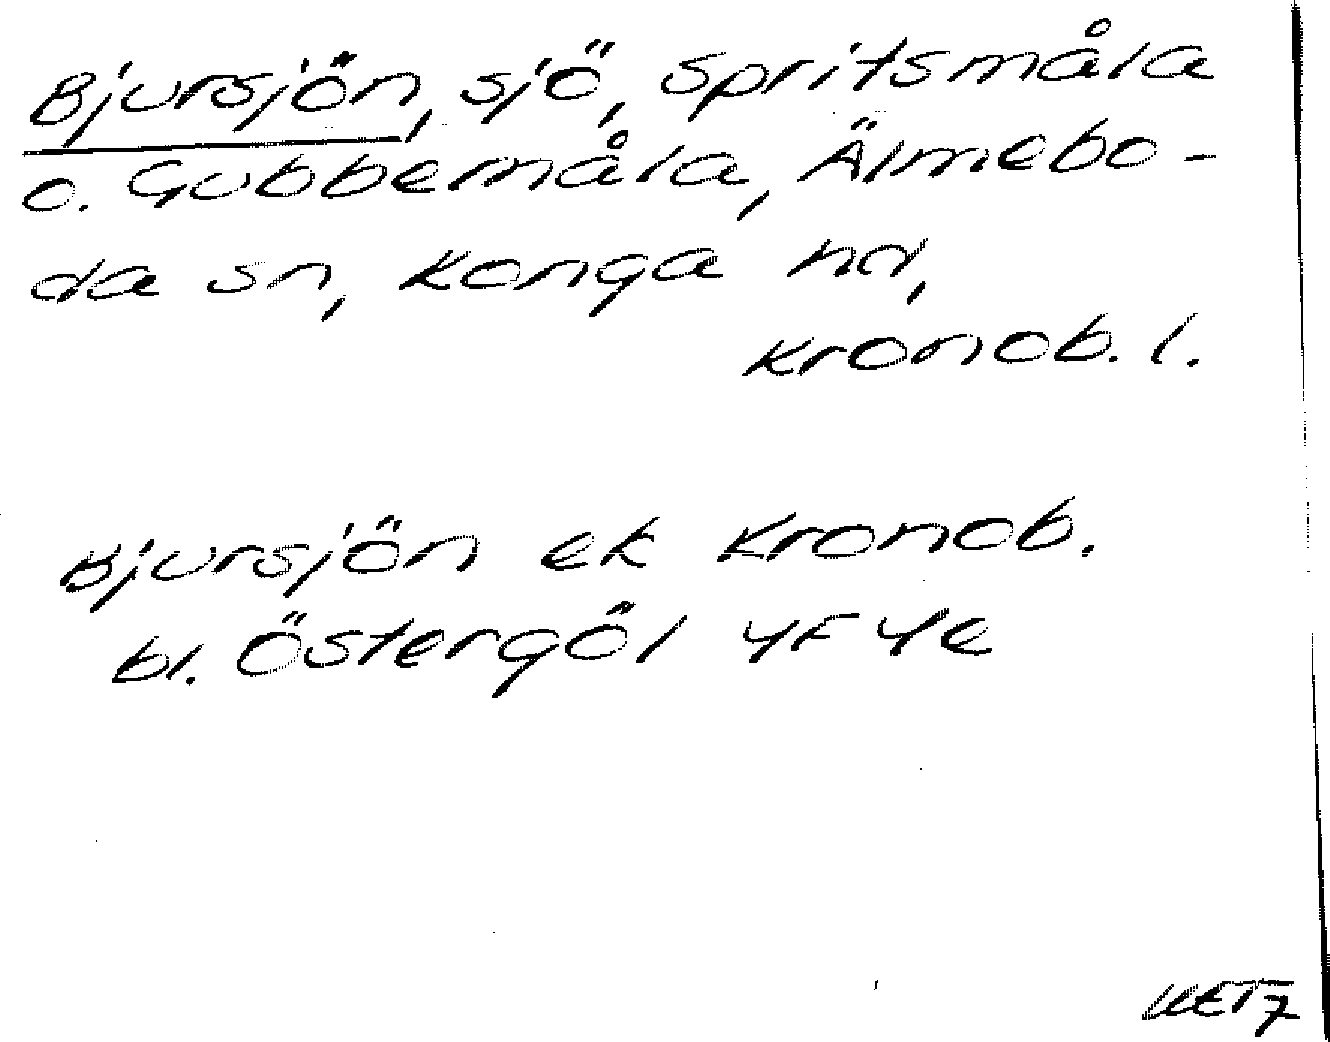 Bjursjön, sjö, Spritsmåla
o. Gubbemåla, Älmebo-
da sn, Konga hd,
Kronob. l.
Bjursjön ek Kronob.
bl. Östergöl 4F 4e